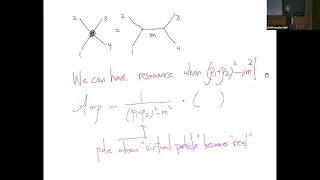 2 3 = 2 3
m
1 4 1 4
We can have resonance when (p₁+p₂)² → m²!
Amp ~ 1 / ((p₁+p₂)² - m²) · ( )
pole when "virtual particle" becomes "real"